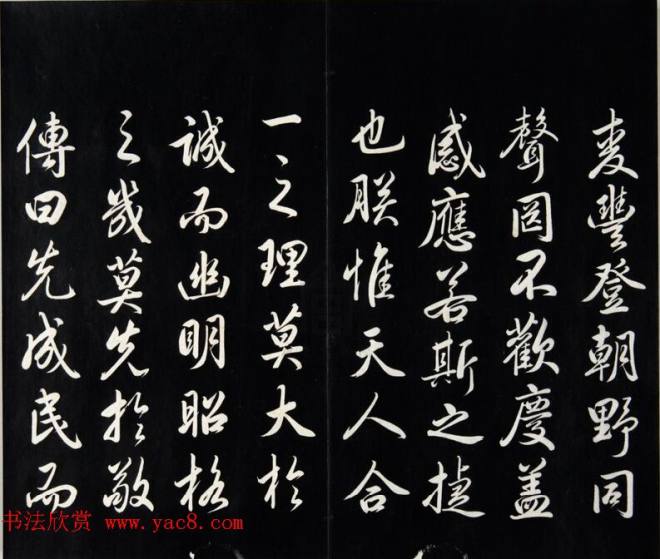 麦豐登朝野同
聲罔不歡慶盖
感應若斯之捷
也朕惟天人合
一之理莫大於
誠而幽明昭格
之幾莫先於敬
傳曰先成民而
书法欣赏 www.yac8.com